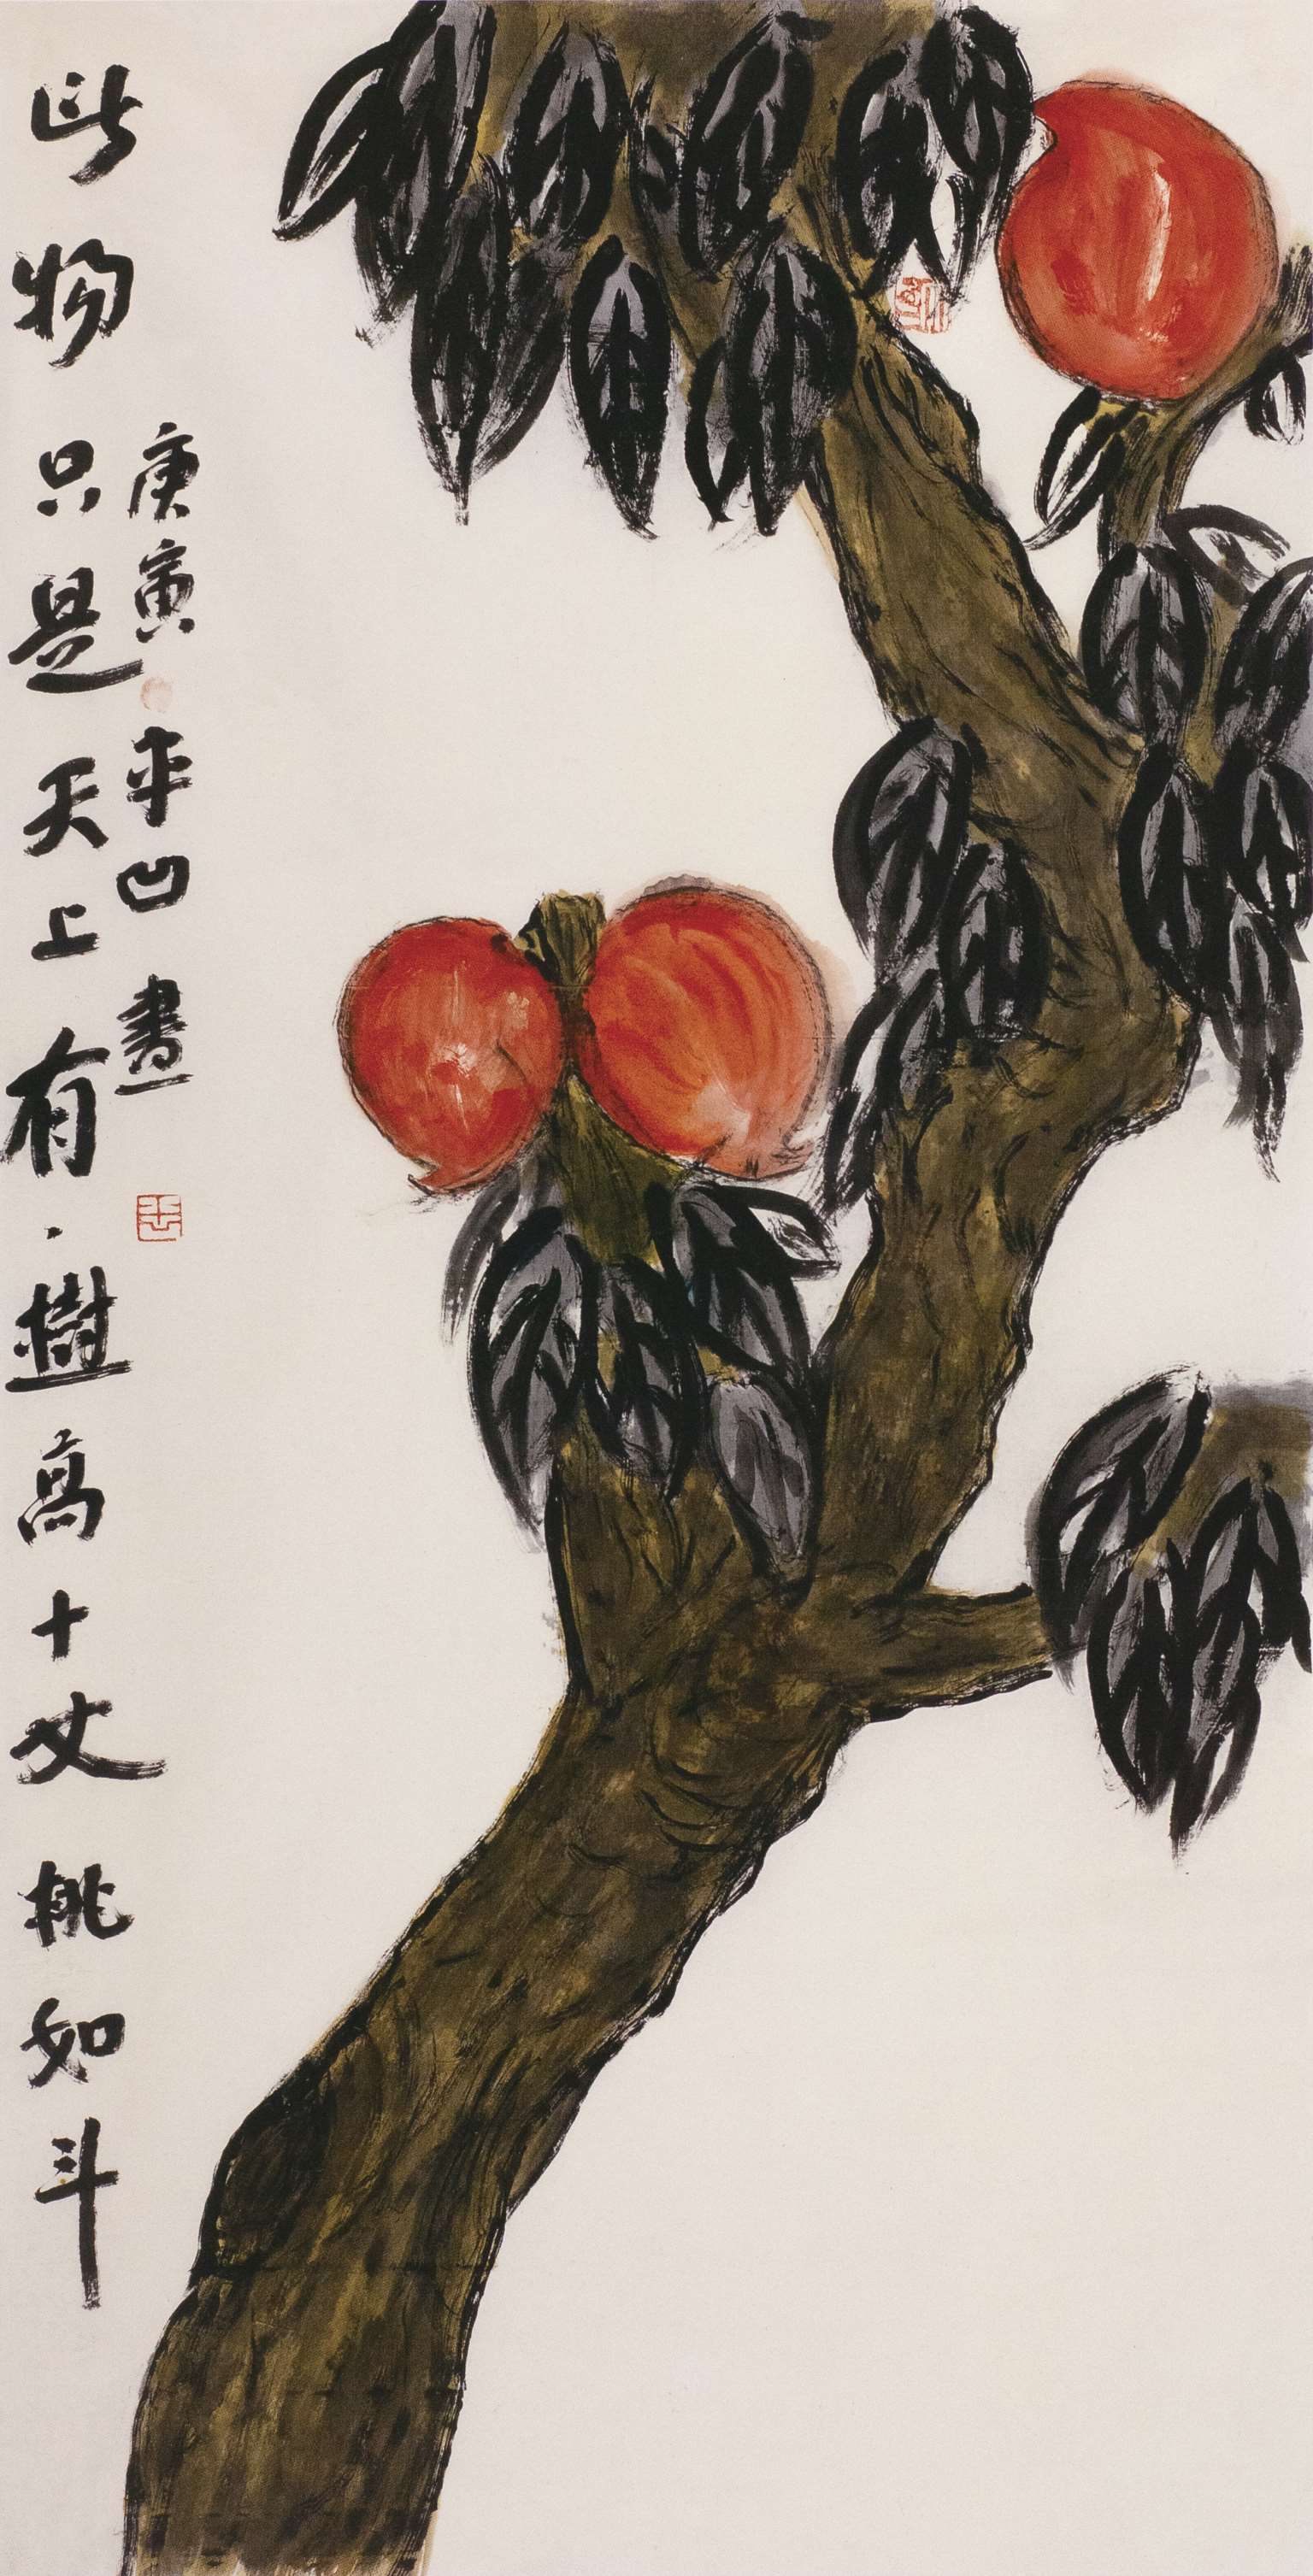 此物只是天上有·樹高十丈桃如斗
庚寅平凹畫